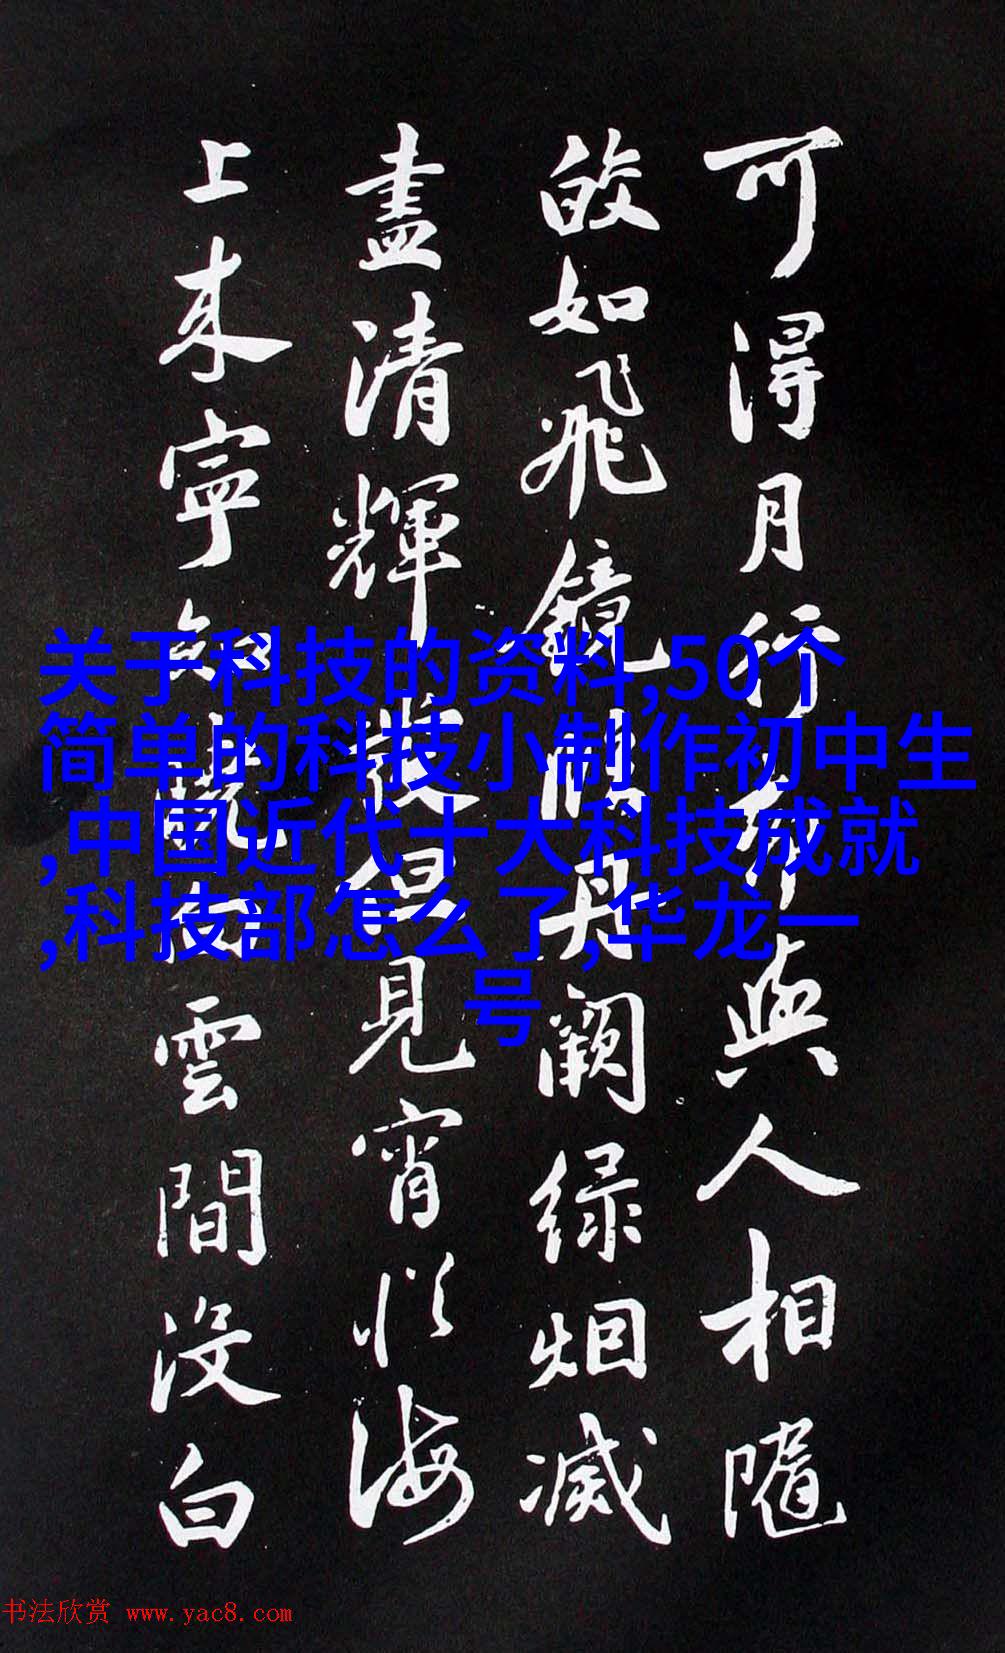 可得月行與人相隨
皎如飛鏡臨丹闕緑烟滅
盡清輝發但見宵從海
上来寧知曉向雲間沒白
关于科技的资料,50个
简单的科技小制作初中生
,中国近代十大科技成就
,科技部怎么了,华龙一
号
书法欣赏 www.yac8.com